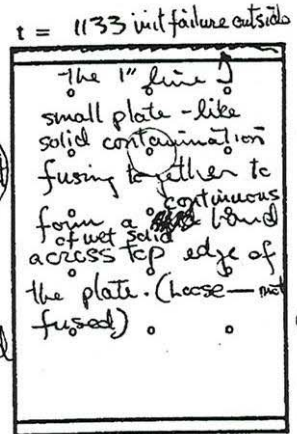 t = 1133 init failure outside
The 1" fine
small plate-like
solid contamination
fusing together to
continuous
form a band
of wet solid
across top edge of
the plate. (Loose — not
fused)